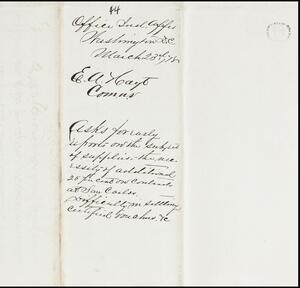 44
Office Ind Affs
Washington D.C.
March 23rd, 78
E. A. Hayt
Comnr
Asks for early
reports on the subject
of supplies - the nec
essity of additional
25 per cent on contracts
at San Carlos
Difficulty in settling
certified vouchers &c